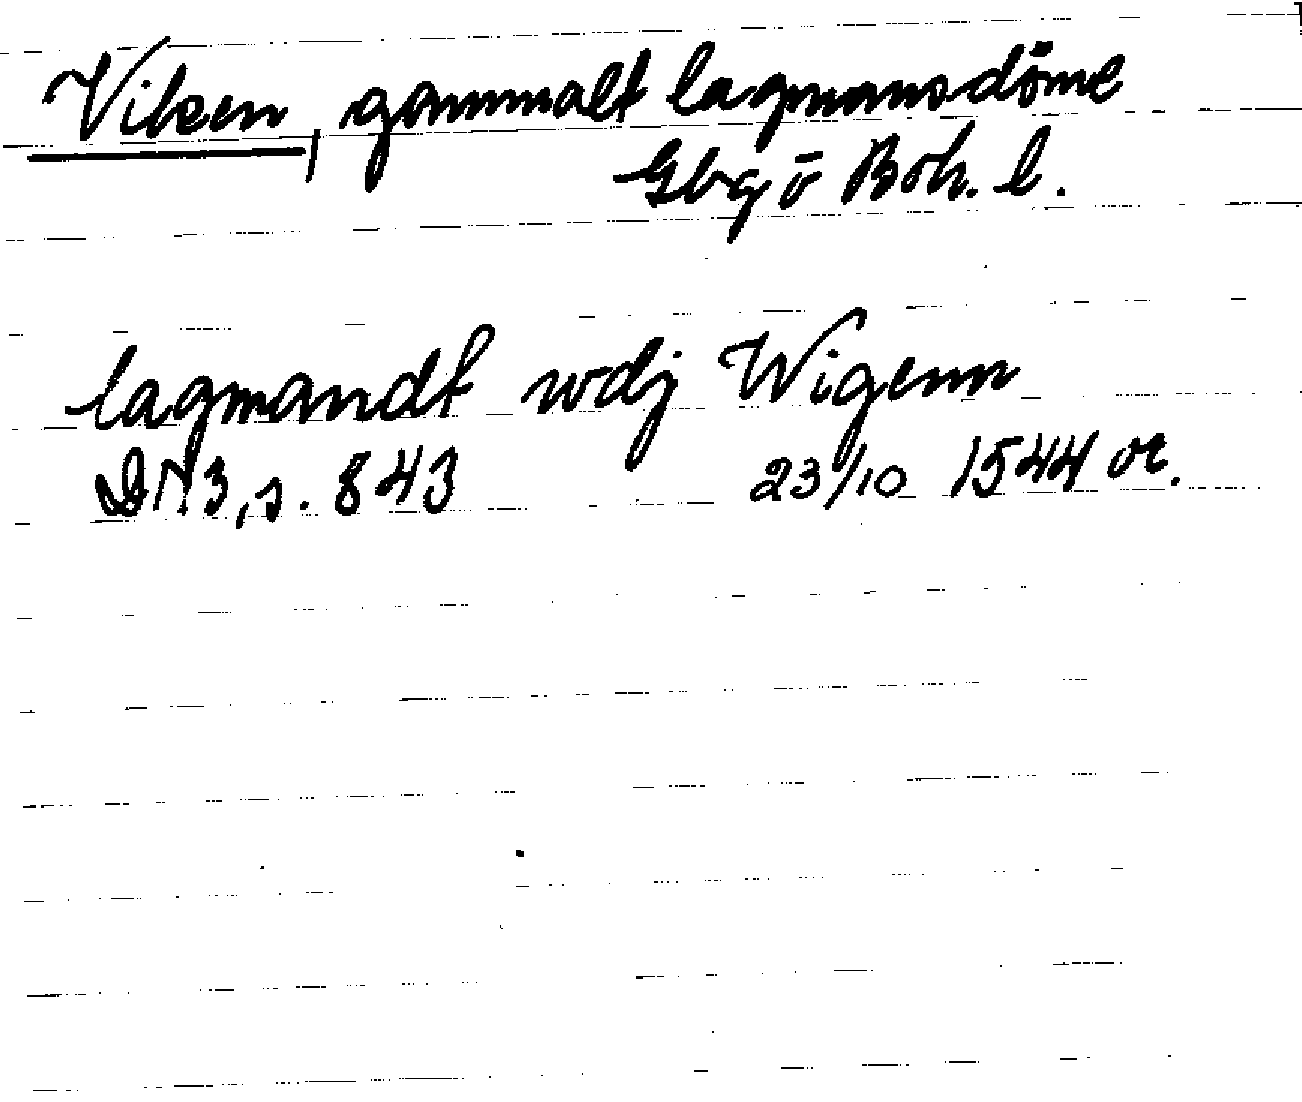 Viken, gammalt lagmansdöme
Gbg o Boh. l.
lagmandt wdj Wigenn
DN 3, s. 843 23/10 1544 or.